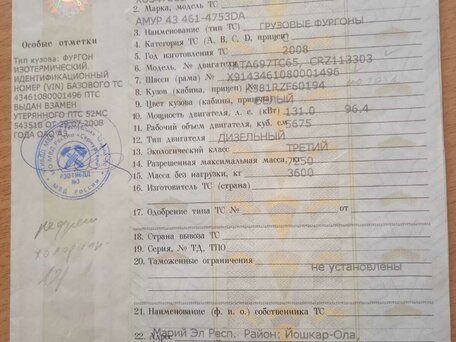 2. Марка, модель ТС
АМУР 43 461-4753DA
3. Наименование (тип ТС) ГРУЗОВЫЕ ФУРГОНЫ
4. Категория ТС (А, В, С, D, прицеп)
5. Год изготовления ТС 2008
6. Модель, № двигателя TATA697TC65, CRZ113303
7. Шасси (рама) № X9143461080001496
8. Кузов (кабина, прицеп) №
9. Цвет кузова (кабины, прицепа) БЕЛЫЙ
10. Мощность двигателя, л. с. (кВт) 131.0 96.4
11. Рабочий объем двигателя, куб. см 5675
12. Тип двигателя ДИЗЕЛЬНЫЙ
13. Экологический класс ТРЕТИЙ
14. Разрешенная максимальная масса, 7250
15. Масса без нагрузки, кг 3600
16. Изготовитель ТС (страна)
17. Одобрение типа ТС № от
18. Страна вывоза ТС
19. Серия, № ТД, ТПО
20. Таможенные ограничения
не установлены
21. Наименование (ф. и. о.) собственника ТС
22. Адрес Марий Эл Респ. Район: Йошкар-Ола,
Особые отметки
Тип кузова: ФУРГОН
ИЗОТЕРМИЧЕСКИЙ,
ИДЕНТИФИКАЦИОННЫЙ
НОМЕР (VIN) БАЗОВОГО ТС
43461080001496 ПТС
ВЫДАН ВЗАМЕН
УТЕРЯННОГО ПТС 52МС
543518 ОТ 29.07.2008
ГОДА ОАО АЗ
МВД РОССИИ